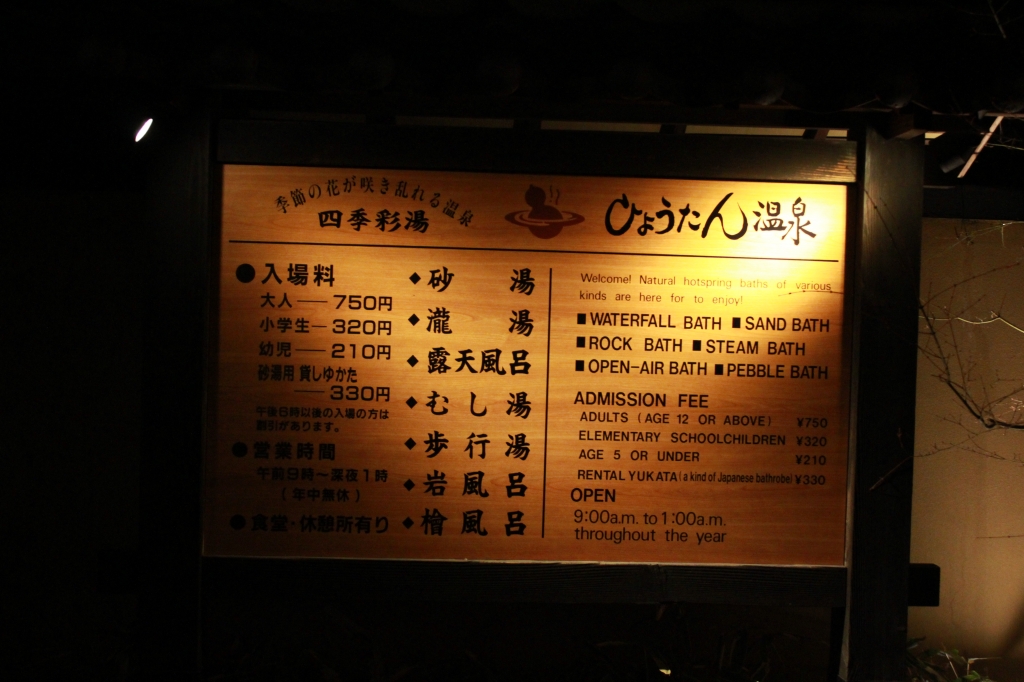 季節の花が咲き乱れる温泉
四季彩湯
ひょうたん温泉
●入場料
大人──750円
小学生─320円
幼児──210円
砂湯用 貸しゆかた
──330円
午後6時以後の入場の方は
割引があります。
●営業時間
午前9時〜深夜1時
(年中無休)
●食堂・休憩所有り
◆砂湯
◆瀧湯
◆露天風呂
◆むし湯
◆歩行湯
◆岩風呂
◆檜風呂
Welcome! Natural hotspring baths of various
kinds are here for to enjoy!
■WATERFALL BATH ■SAND BATH
■ROCK BATH ■STEAM BATH
■OPEN-AIR BATH ■PEBBLE BATH
ADMISSION FEE
ADULTS (AGE 12 OR ABOVE) ¥750
ELEMENTARY SCHOOLCHILDREN ¥320
AGE 5 OR UNDER ¥210
RENTAL YUKATA (a kind of Japanese bathrobe) ¥330
OPEN
9:00a.m. to 1:00a.m.
throughout the year